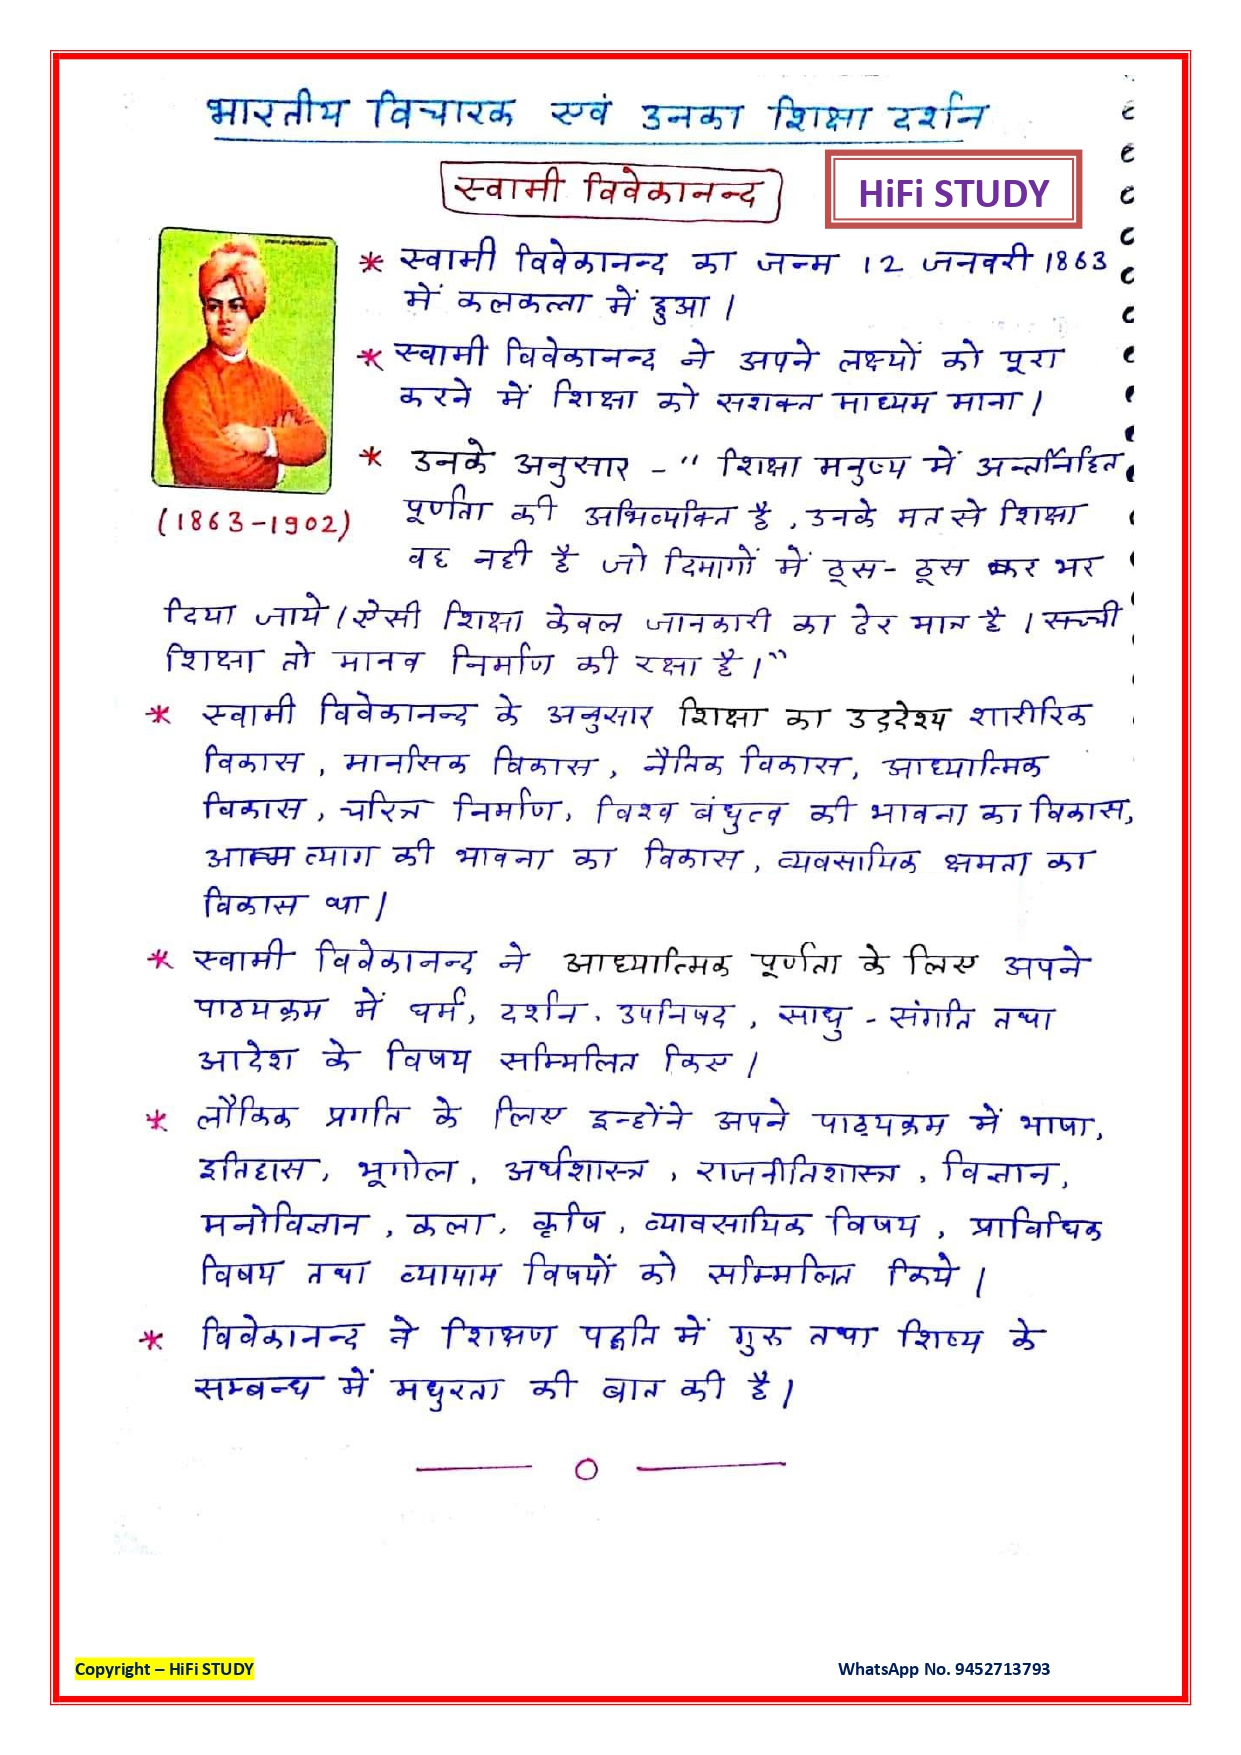 भारतीय विचारक एवं उनका शिक्षा दर्शन
स्वामी विवेकानन्द
HiFi STUDY
* स्वामी विवेकानन्द का जन्म 12 जनवरी 1863
में कलकत्ता में हुआ।
* स्वामी विवेकानन्द ने अपने लक्ष्यों को पूरा
करने में शिक्षा को सशक्त माध्यम माना।
* उनके अनुसार - " शिक्षा मनुष्य में अन्तर्निहित
(1863-1902)
पूर्णता की अभिव्यक्ति है, उनके मत से शिक्षा
वह नही है जो दिमागों में ठूस- ठूस कर भर
दिया जाये। ऐसी शिक्षा केवल जानकारी का ढेर मात्र है। सच्ची
शिक्षा तो मानव निर्माण की रक्षा है।"
* स्वामी विवेकानन्द के अनुसार शिक्षा का उद्देश्य शारीरिक
विकास, मानसिक विकास, नैतिक विकास, आध्यात्मिक
विकास, चरित्र निर्माण, विश्व बंधुत्व की भावना का विकास,
आत्म त्याग की भावना का विकास, व्यवसायिक क्षमता का
विकास था।
* स्वामी विवेकानन्द ने आध्यात्मिक पूर्णता के लिए अपने
पाठ्यक्रम में धर्म, दर्शन, उपनिषद, साधु - संगति तथा
आदेश के विषय सम्मिलित किए।
* लौकिक प्रगति के लिए इन्होंने अपने पाठ्यक्रम में भाषा,
इतिहास, भूगोल, अर्थशास्त्र, राजनीतिशास्त्र, विज्ञान,
मनोविज्ञान, कला, कृषि, व्यावसायिक विषय, प्राविधिक
विषय तथा व्यायाम विषयों को सम्मिलित किये।
* विवेकानन्द ने शिक्षण पद्धति में गुरु तथा शिष्य के
सम्बन्ध में मधुरता की बात की है।
Copyright – HiFi STUDY
WhatsApp No. 9452713793